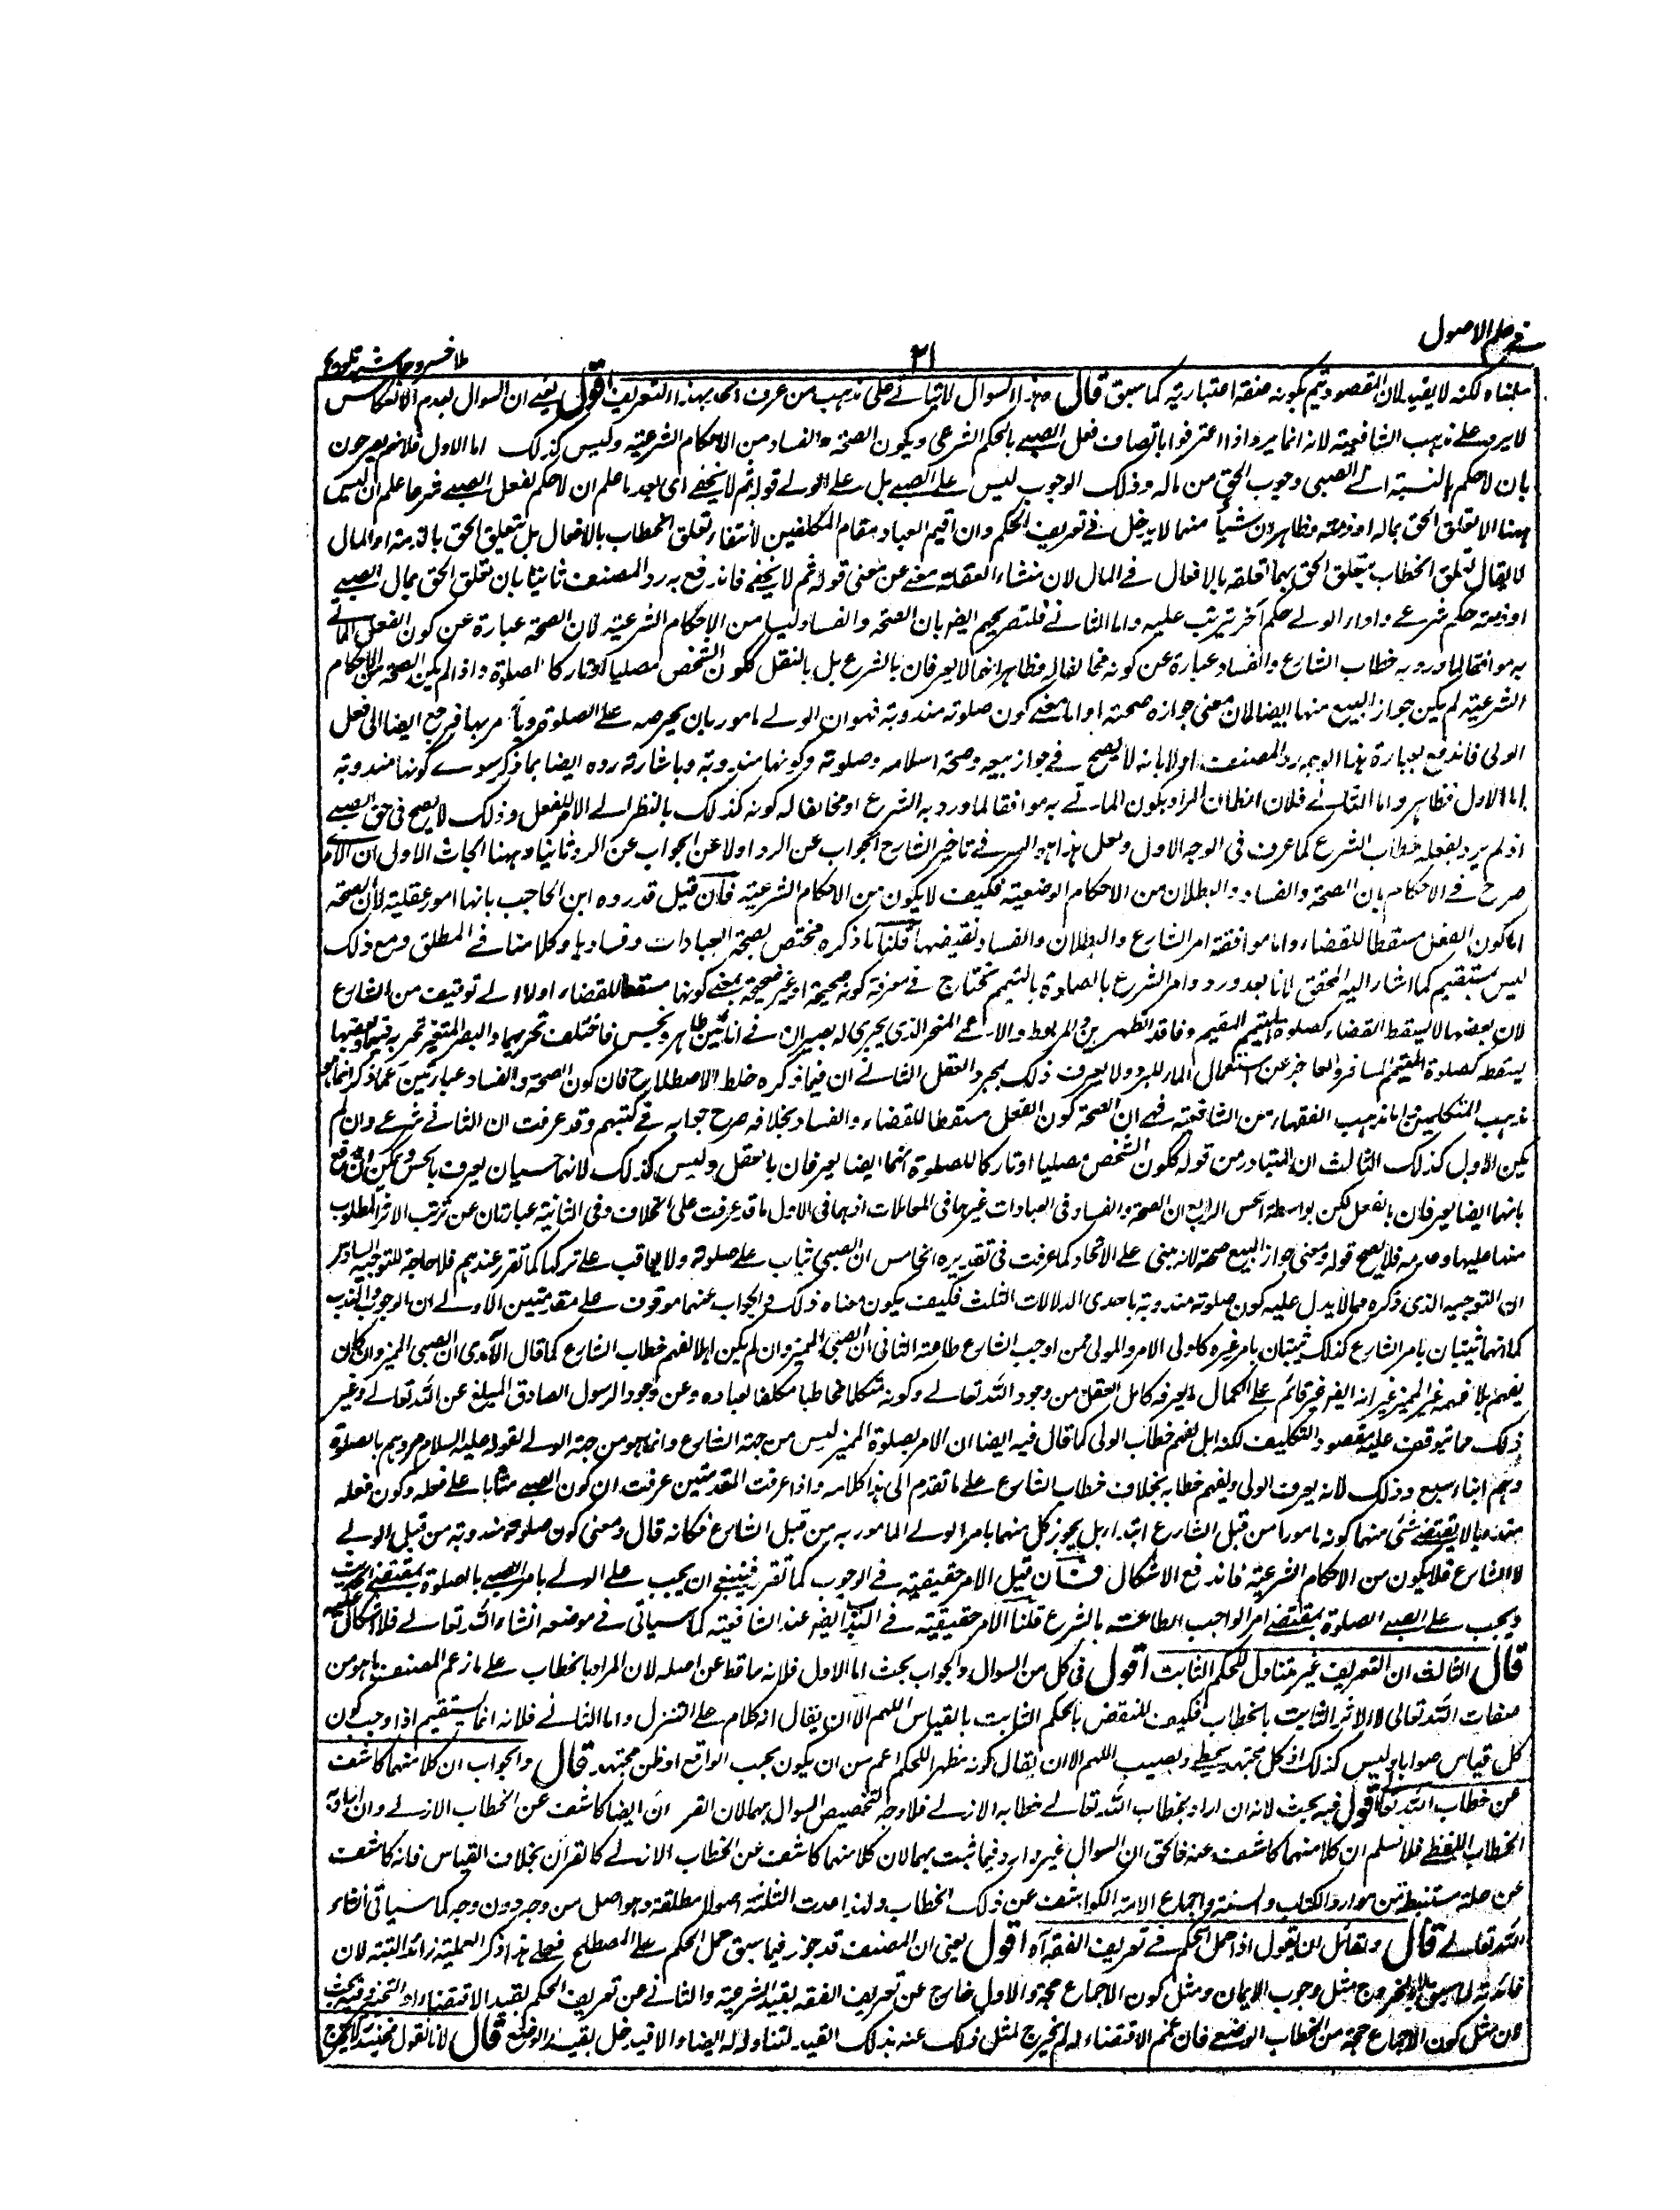 في علم الاصول
٢١
ملا خسرو حاشية تلويح
سلمناه لكنه لا يفيد لان المقصود يتم بكونه صفة اعتبارية كما سبق قال وهذا السوال لا يتاتى على مذهب من عرف الحكم بهذا التعريف اقول يعني ان السوال بعدم الانعكاس
لا يرد على مذهب الشافعية لانه انما يرد اذا اعترفوا باتصاف فعل الصبي بالحكم الشرعي ويكون الصحة والفساد من الاحكام الشرعية وليس كذلك اما الاول فلانهم يصرحون
بان لا حكم بالنسبة الى الصبي الا وجوب الحق من ماله وذلك الوجوب ليس على الصبي بل على الولي قوله ثم لا يخفى اي بعد ما علم ان لا حكم لفعل الصبي ضرورة علم ان ليس
ههنا الا تعلق الحق بماله او ذمته وظاهر ان شيئا منهما لا يدخل في تعريف الحكم وان اقيم العباد مقام المكلفين لانتفاء تعلق الخطاب بالافعال بل تعلق الحق بالذمة او المال
لا يقال تعلق الخطاب بتعلق الحق بهما تعلقه بالافعال في المال لان منشاء الغفلة عن معنى قوله ثم لا يخفى فاندفع به رد المصنف ثانيا بان تعلق الحق بمال الصبي
او ذمته حكم شرعي واداء الولي حكم آخر يترتب عليه واما الثاني فلتصريحهم ايضا بان الصحة والفساد ليسا من الاحكام الشرعية لان الصحة عبارة عن كون الفعل الماتي
به موافقا لما ورد به خطاب الشارع والفساد عبارة عن كونه مخالفا له وظاهر انهما لا يعرفان بالشرع بل بالعقل ككون الشخص مصليا او تاركا للصلوة واذا لم يكن الصحة من الاحكام
الشرعية لم يكن جواز البيع منها ايضا لان معنى جوازه صحته واما معنى كون صلوته مندوبة فهو ان الولي مامور بان يحرضه على الصلوة ويامر بها فرجع ايضا الى فعل
الولي فاندفع بعبارة هذا الوجه رد المصنف اولا بانه لا يصح في جواز بيعه وصحة اسلامه وصلوته وكونها مندوبة وباشارته رده ايضا بما ذكر سوى كونها مندوبة
اما الاول فظاهر واما الثاني فلان الظاهر ان المراد بكون الماتي به موافقا لما ورد به الشرع او مخالفا له كونه كذلك بالنظر الى الامر بالفعل وذلك لا يصح في حق الصبي
اذ لم يرد بفعله خطاب الشرع كما عرف في الوجه الاول ولعل هذا هو السر في تاخير الشارح الجواب عن الرد اولا عن الجواب عن الرد ثانيا وههنا ابحاث الاول ان الآمدي
صرح في الاحكام بان الصحة والفساد والبطلان من الاحكام الوضعية فكيف لا يكون من الاحكام الشرعية فان قيل قد رده ابن الحاجب بانها امور عقلية لان الصحة
اما كون الفعل مسقطا للقضاء واما موافقة امر الشارع والبطلان والفساد نقيضها قلنا ما ذكره مختص بصحة العبادات وفسادها وكلامنا في المطلق ومع ذلك
ليس بمستقيم كما اشار اليه المحقق لانا بعد ورود امر الشرع بالصلوة بالتيمم نحتاج في معرفة كونه صحيحة او غير صحيحة بمعنى كونها مسقطا للقضاء او لا الى توقيف من الشارع
لان بعضها لا يسقط القضاء كصلوة المتيمم المقيم وفاقد الطهورين والمربوط والاعمى المتحير الذي يجري له بصيران في انائين طاهر ونجس فاختلف تحريهما والبصير المتحير تحريه وبعضها
يسقطه كصلوة المتيمم المسافر والعاجز عن استعمال الماء للبرد ولا يعرف ذلك بمجرد العقل الثاني ان فيما ذكره خلط الاصطلاح فان كون الصحة والفساد عبارتين عما ذكر انما هو
مذهب المتكلمين واما مذهب الفقهاء من الشافعية فهو ان الصحة كون الفعل مسقطا للقضاء والفساد بخلافه صرح جوابه في كتبهم وقد عرفت ان الثاني شرعي وان لم
يكن الاول كذلك الثالث ان المتبادر من قوله ككون الشخص مصليا او تاركا للصلوة انهما ايضا يعرفان بالعقل وليس كذلك لانهما حسيان يعرف بالحس ويمكن ان يدفع
بانهما ايضا يعرفان بالعقل لكن بواسطة الحس الرابع ان الصحة والفساد في العبادات غيرهما في المعاملات اذ هما في الاول ما قد عرفت على الخلاف وفي الثانية عبارتان عن ترتب الاثر المطلوب
منها عليها وعدمه فلا يصح قوله ومعنى جواز البيع صحته لانه مبني على الاتحاد كما عرفت في تقريره الخامس ان الصبي يثاب على صلوته ولا يعاقب على تركها كما تقرر عندهم فلا حاجة للتوجيه السادس
ان التوجيه الذي ذكره مما لا يدل عليه كون صلوته مندوبة باحدى الدلالات الثلث فكيف يكون معناه ذلك والجواب عنهما موقوف على مقدمتين الاولى ان الوجوب والندب
كما انهما ثبتيان بامر الشارع كذلك يثبتان بامر غيره كاولي الامر والمولى ممن اوجب الشارع طاعته الثاني ان الصبي المميز وان لم يكن اهلا لفهم خطاب الشارع كما قال الآمدي ان الصبي المميز وان كان
يفهم بلا فهمه غير المميز غير انه ايضا غير قائم على الكمال يعرفه كامل العقل من وجود الله تعالى وكونه متكلما مخاطبا مكلفا لعباده وعن وجود الرسول الصادق المبلغ عن الله تعالى وغير
ذلك مما يتوقف عليه مقصود التكليف لكنه اهل لفهم خطاب الولي كما قال فيه ايضا ان الامر بصلوة المميز ليس من جهة الشارع وانما هو من جهة الولي لقوله عليه السلام مروهم بالصلوة
وهم ابناء سبع وذلك لانه يعرف الولي ويفهم خطابه بخلاف خطاب الشارع على ما تقدم الى هذا كلامه واذا عرفت المقدمتين عرفت ان كون الصبي مثابا على فعله وكون فعله
مندوبا لا يقتضي شئ منهما كونه مامورا من قبل الشارع ابتداء بل يجوز كل منهما بامر الولي المامور به من قبل الشارع فكانه قال ومعنى كون صلوته مندوبة من قبل الولي
لا الشارع فلا يكون من الاحكام الشرعية فاندفع الاشكال فان قيل الامر حقيقة في الوجوب كما تقرر فينبغي ان يجب على الولي بامر الصبي بالصلوة بمقتضى الحديث
ويجب على الصبي الصلوة بمقتضى امر الواجب الطاعة بالشرع قلنا الامر حقيقة في الندب ايضا عند الشافعية كما سياتي في موضعه انشاء الله تعالى فلا اشكال عليه
قال الثالث ان التعريف غير متناول للحكم الثابت اقول في كل من السوال والجواب بحث اما الاول فلانه ساقط عن اصله لان المراد بالخطاب على ما زعم المصنف ما هو من
صفات الله تعالى لا الاثر الثابت بالخطاب فكيف للنقض بالحكم الثابت بالقياس اللهم الا ان يقال انه كلام على التنزل واما الثاني فلانه انما يستقيم اذا وجب كون
كل قياس صوابا وليس كذلك اذ كل مجتهد يخطئ ويصيب اللهم الا ان يقال كونه مظهرا للحكم اعم من ان يكون بحسب الواقع او ظن مجتهد قال والجواب ان كلا منهما كاشف
عن خطاب الله تعالى اقول فيه بحث لانه ان اراد بخطاب الله تعالى خطابه الازلي فلا وجه لتخصيص السوال بهما لان القرآن ايضا كاشف عن الخطاب الازلي وان اراد به
الخطاب اللفظي فلا نسلم ان كلا منهما كاشف عنه فالحق ان السوال غير وارد فيما ثبت بهما لان كلا منهما كاشف عن الخطاب الازلي كالقرآن بخلاف القياس فانه كاشف
عن علة مستنبطة من موارد الكتاب والسنة واجماع الامة الكواشف عن ذلك الخطاب ولذا عدت الثلثة اصولا مطلقة وهو اصل من وجه دون وجه كما سياتي انشاء
الله تعالى قال ولقائل ان يقول اذا حمل الحكم في تعريف الفقه آه اقول يعني ان المصنف قد جوز فيما سبق حمل الحكم على المصطلح فعلى هذا ذكر العملية زائد البتة لان
فائدته لما سبق خروج مثل وجوب الايمان ومثل كون الاجماع حجة والاول خارج عن تعريف الفقه بقيد الشرعية والثاني عن تعريف الحكم بقيد الاقتضاء او التخيير وفيه بحث
عن مثل كون الاجماع حجة من الخطاب الوضعي فان عمم الاقتضاء له لم يخرج لمثل ذلك عنه بذلك القيد لتناوله له ايضا والا فيدخل بقيد الوضع قال لانا نقول فحينئذ لا يخرج